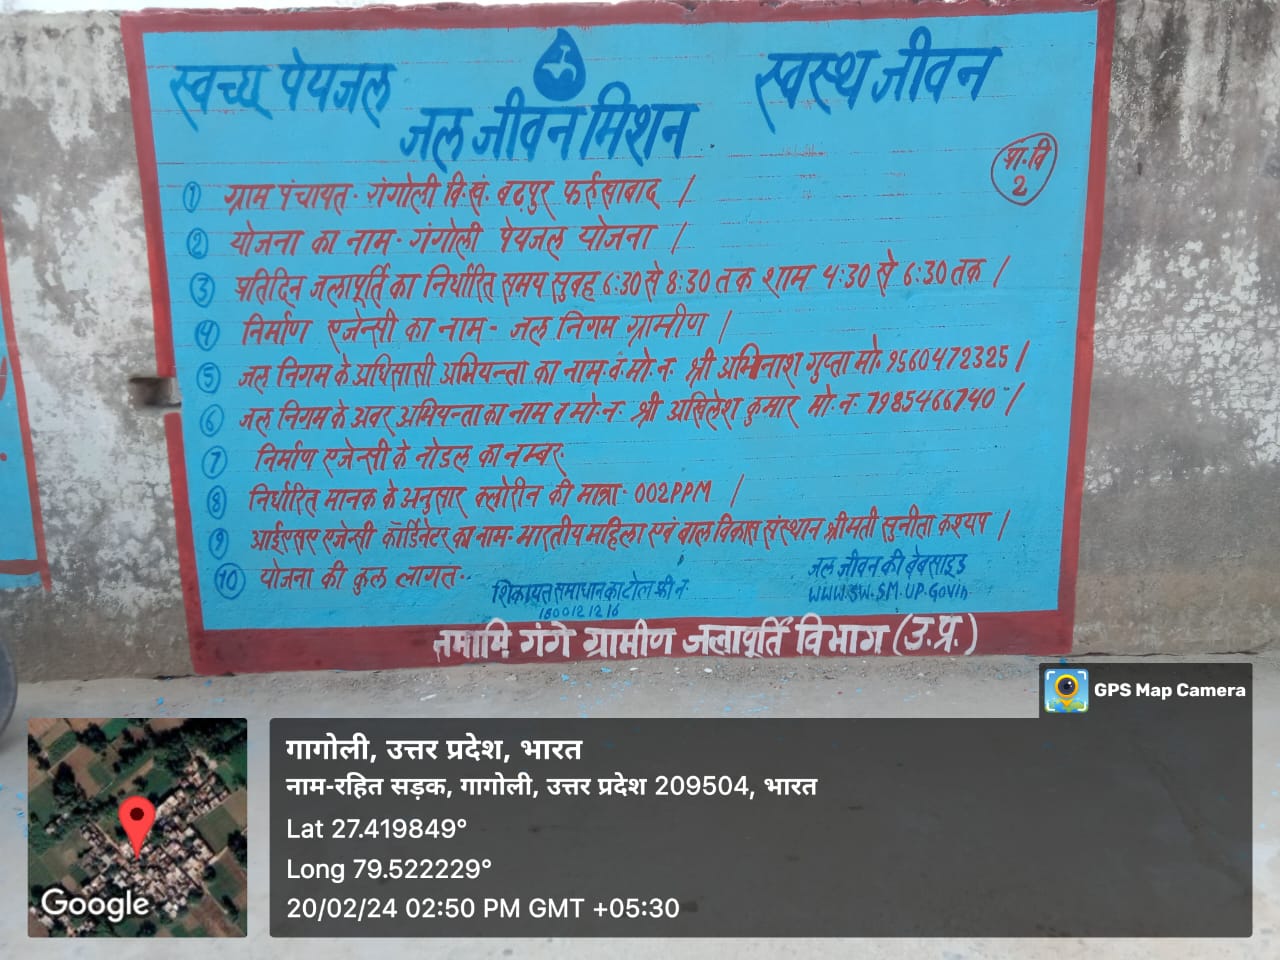 स्वच्छ पेयजल
स्वस्थ जीवन
जल जीवन मिशन
प्रा.वि
2
① ग्राम पंचायत- गंगोली वि.खं. बढ़पुर फर्रुखाबाद /
② योजना का नाम- गंगोली पेयजल योजना /
③ प्रतिदिन जलापूर्ति का निर्धारित समय सुबह 6:30 से 8:30 तक शाम 4:30 से 6:30 तक /
④ निर्माण एजेन्सी का नाम- जल निगम ग्रामीण /
⑤ जल निगम के अधिसासी अभियन्ता का नाम व मो.न. श्री अभिनाश गुप्ता मो. 9560472325 /
⑥ जल निगम के अवर अभियन्ता का नाम व मो.न. श्री अखिलेश कुमार मो.न. 7985466740 /
⑦ निर्माण एजेन्सी के नोडल का नम्बर
⑧ निर्धारित मानक के अनुसार क्लोरीन की मात्रा- 002PPM /
⑨ आईएसए एजेन्सी कॉर्डिनेटर का नाम- भारतीय महिला एवं बाल विकास संस्थान श्रीमती सुनीता कश्यप /
⑩ योजना की कुल लागत..
शिकायत समाधान का टोल फ्री न.
1800121216
जल जीवन की बेबसाइड
WWW.SW.SM.UP.Govin.
नमामि गंगे ग्रामीण जलापूर्ति विभाग (उ.प्र.)
GPS Map Camera
गागोली, उत्तर प्रदेश, भारत
नाम-रहित सड़क, गागोली, उत्तर प्रदेश 209504, भारत
Lat 27.419849°
Long 79.522229°
20/02/24 02:50 PM GMT +05:30
Google